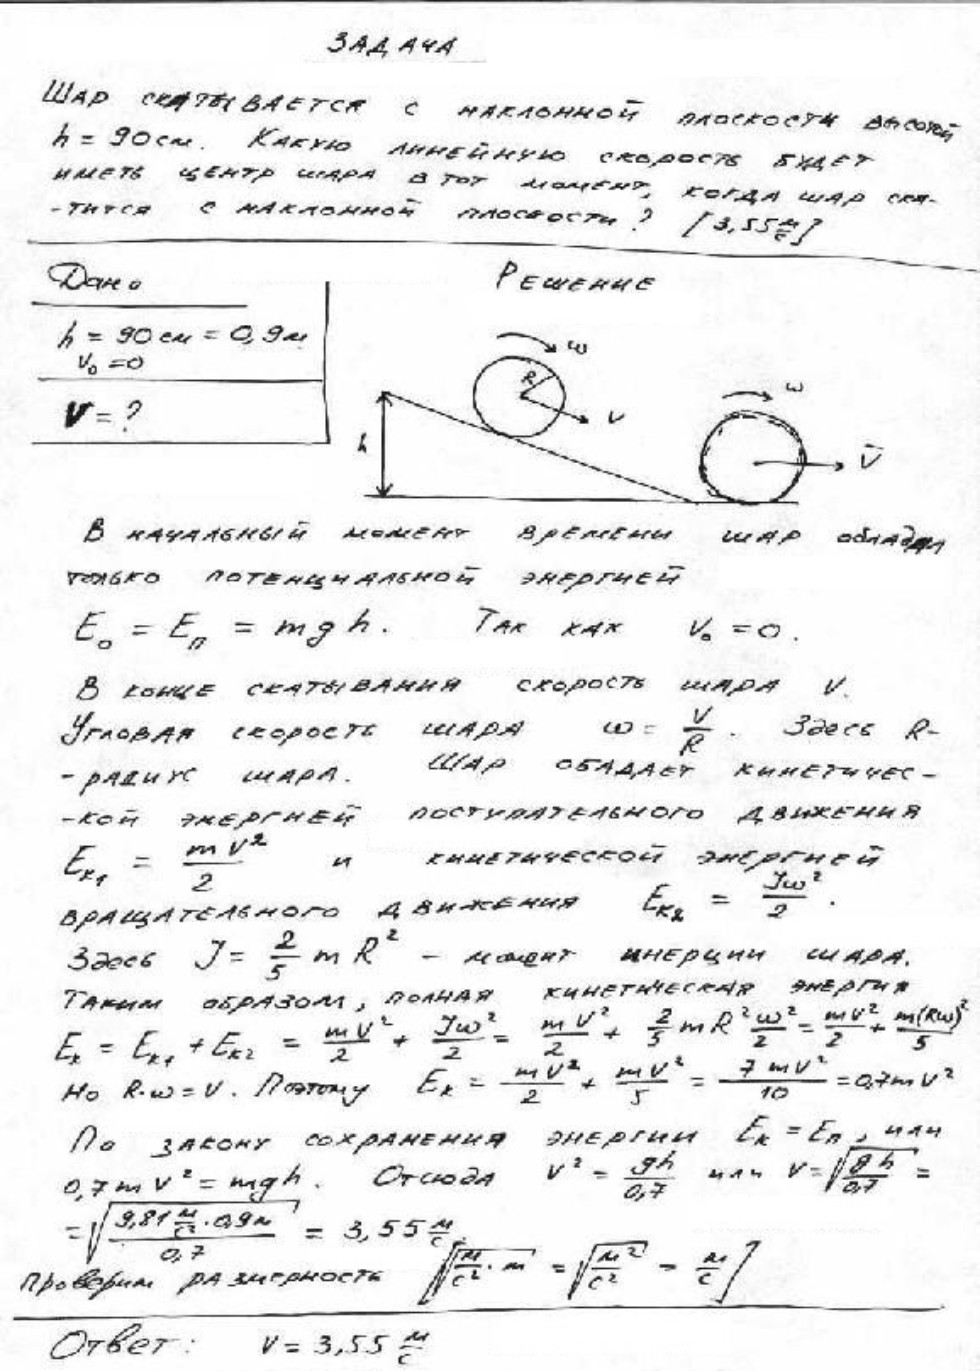 ЗАДАЧА
Шар скатывается с наклонной плоскости высотой
h = 90 см. Какую линейную скорость будет
иметь центр шара в тот момент, когда шар ска-
-тится с наклонной плоскости? [3,55 м/с]
Дано
Решение
h = 90 см = 0,9 м
V₀ = 0
V = ?
ω
R
V
h
ω
V̄
В начальный момент времени шар обладал
только потенциальной энергией
E₀ = Eп = mgh. Так как V₀ = 0.
В конце скатывания скорость шара V.
Угловая скорость шара ω = V/R. Здесь R-
-радиус шара. Шар обадает кинетичес-
-кой энергией поступательного движения
Eк₁ = mV²/2 и кинетической энергией
вращательного движения Eк₂ = Jω²/2.
Здесь J = 2/5 mR² - момент инерции шара.
Таким образом, полная кинетическая энергия
Eк = Eк₁ + Eк₂ = mV²/2 + Jω²/2 = mV²/2 + 2/5 mR² ω²/2 = mV²/2 + m(Rω)²/5
Но R·ω = V. Поэтому Eк = mV²/2 + mV²/5 = 7mV²/10 = 0,7mV²
По закону сохранения энергии Eк = Eп, или
0,7mV² = mgh. Отсюда V² = gh/0,7 или V = √(gh/0,7) =
= √(9,81 м/с² · 0,9м / 0,7) = 3,55 м/с.
Проверим размерность [√(м/с² · м) = √(м²/с²) = м/с]
Ответ: V = 3,55 м/с